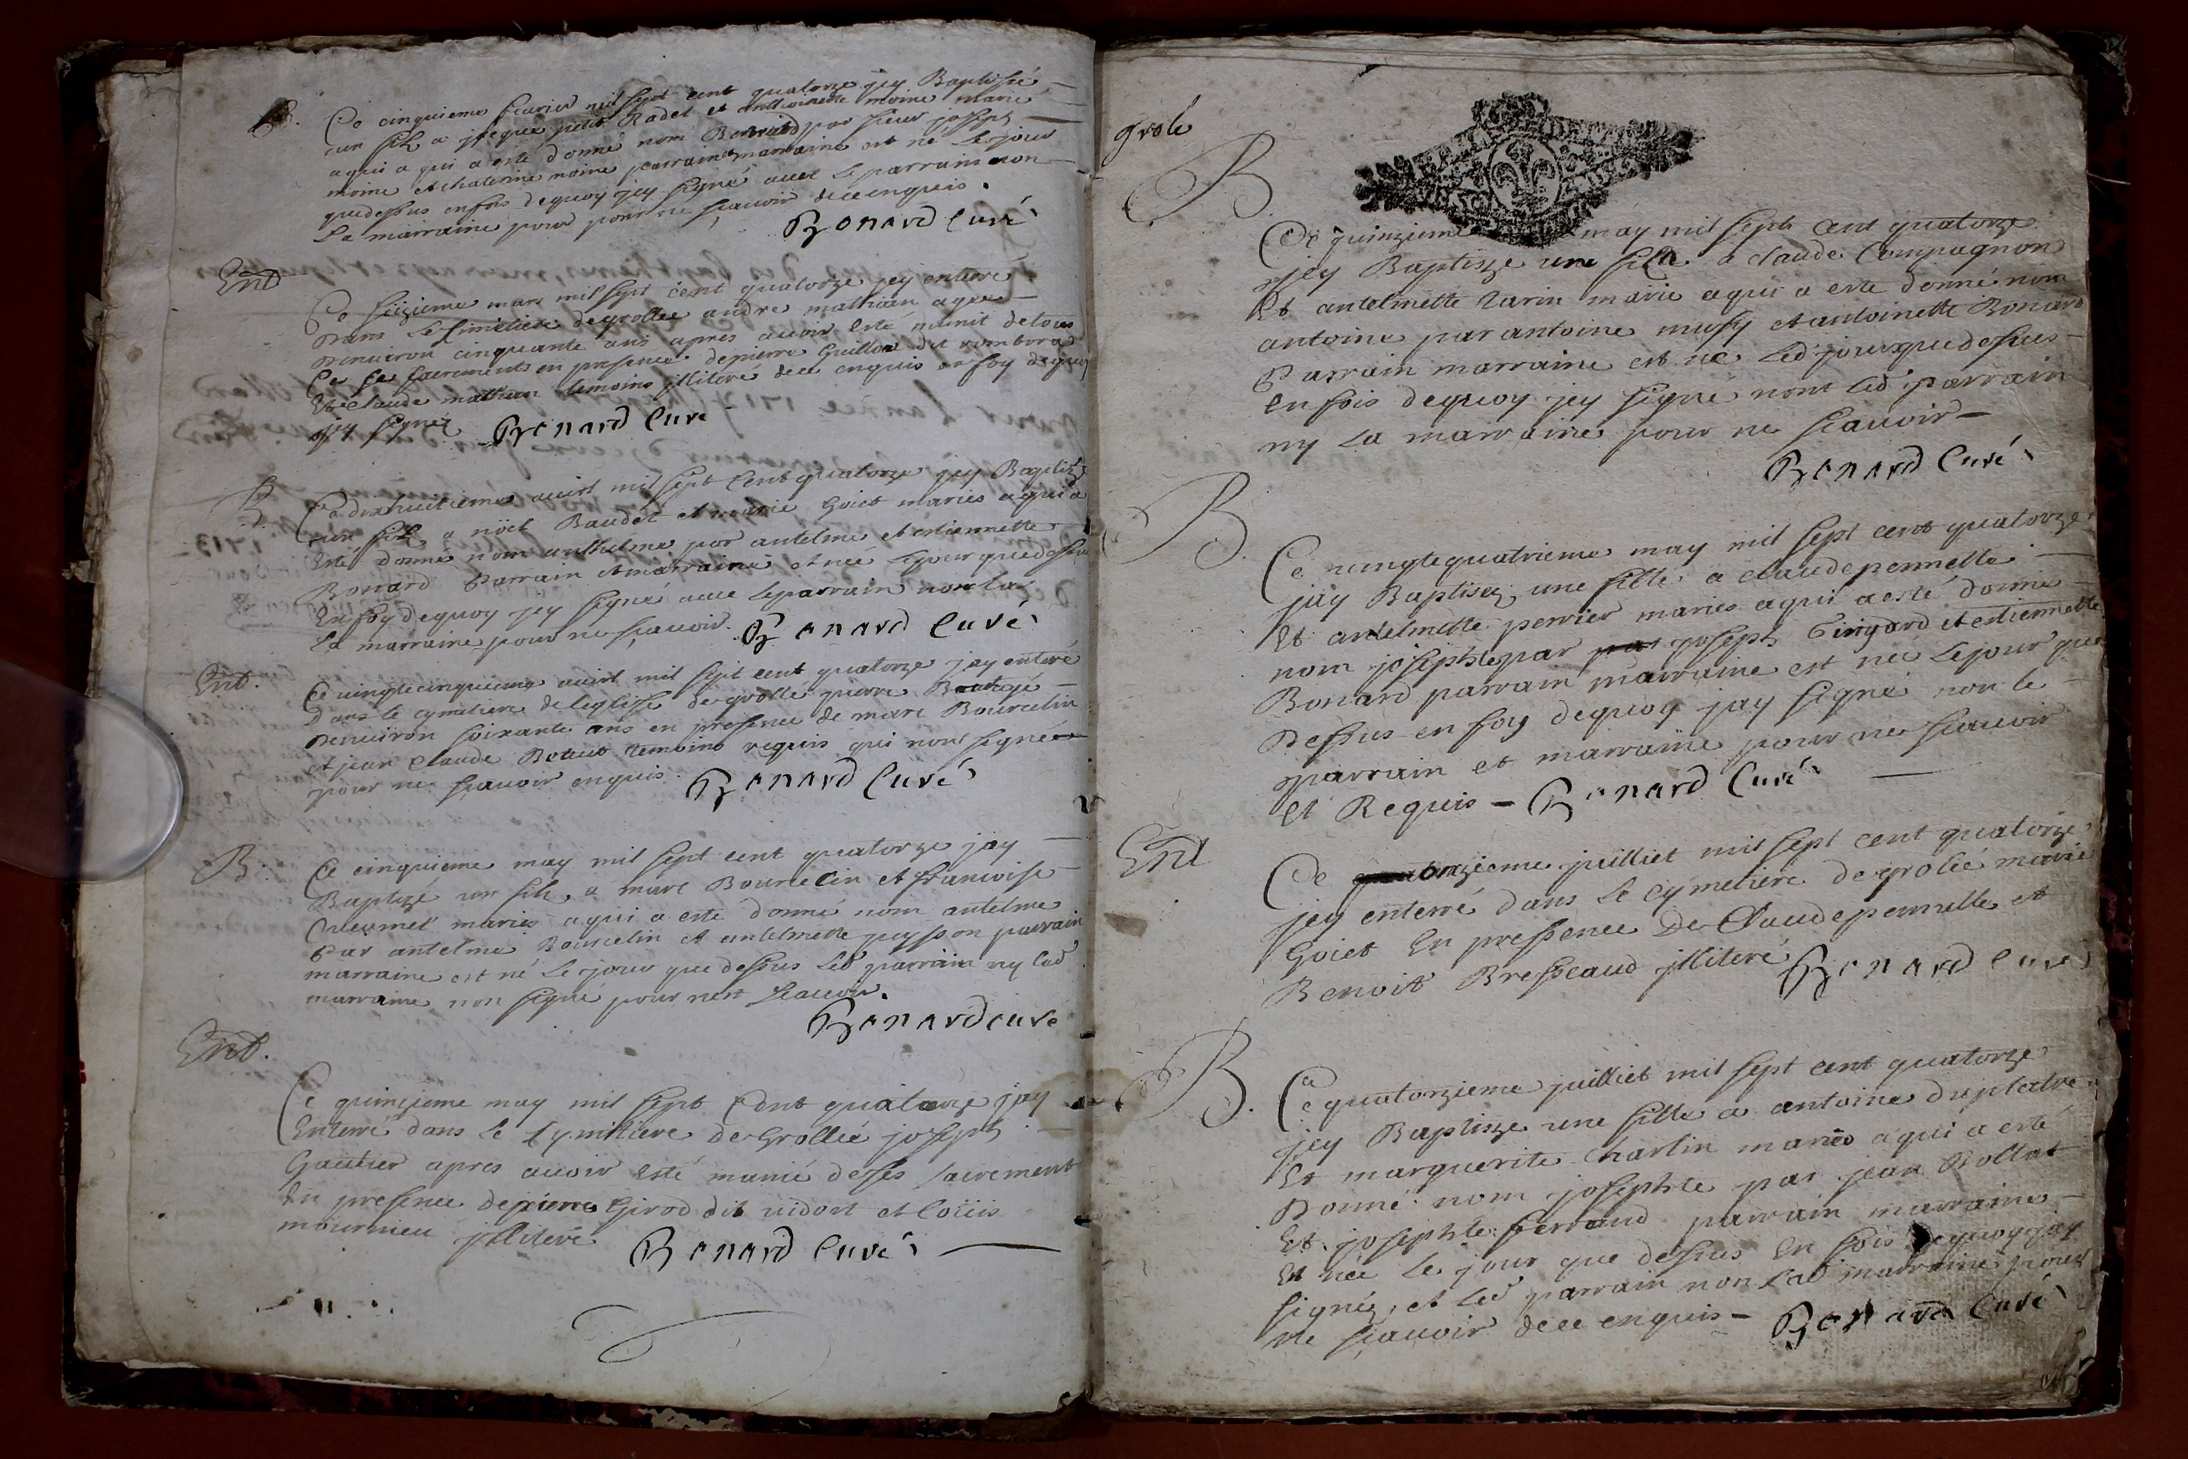 B.
Ce cinquieme feurier mil sept cent quatorze jey Baptisé
un filz a jacque petit Radet et anthoinette moine marié
aqui a qui a esté donné nom Bernard par sieur joseph
moine et chaterine moine parrain et marraine est né le jour
que dessus en fois de quoy jey signé auec le parrain non
La marraine pour ne scauoir de ce enquis.
Bonard Curé
Ent
Ce seizieme mars mil sept cent quatorze jey enterré
Dans le simetiere de grollee andre mathian agee
Denuiron cinquante ans apres auoir esté munit de tous
Ce se sacrements en presence de pierre Guillon dit
Et claude mathian temoins jlliteré de ce enquis en foy de quoy
jey signéz Bonard Curé
B.
Ce dixhuitieme auirl mil sept Cent quatorze jey Baptisé
un filz a noel Baudet et marie Goiet maries aqui a
Este donné nom anthelme par antelme et estiennette
Bonard Parrain et marraine et née le jour que dessus
En foy de quoy jey signé auec le parrain non
La marraine pour ne scauoir. Bonard Curé
Ent.
Ce vingtecinquieme auirl mil sept cent quatorze jay enteré
Dans le cymetiere de leglise de grolle pierre
Denuiron soixante ans en presence de marc Bourcelin
et jean claude temoins requis qui nont signé
pour ne scauoir enquis. Bonard Curé
B.
Ce cinquieme may mil sept cent quatorze jay
Baptizé un filz a marc Bourcelin et francoise
maries aqui a esté donné nom antelme
Par antelme Bourcelin et antelmette peysson parrain
marraine est né le jour que dessus led parrain ny lad
marraine non signé pour nest scauoir.
Bonard curé
Ent.
Ce quinzieme may mil sept Cent quatorze jay
Enterré dans le Cymitiere de Grollée joseph
Gautier apres auoir esté munié de ses sacrement
En presence de pierre Girod dit vidort et Loüis
mournieu jlliteré Bonard Curé
grole
B.
Ce quinzieme may mil sept cent quatorze
jey Baptisze une fille a claude Compagnon
Et antelmette varin marie aqui a este donné nom
antoine par antoine mufy et antoinette Bonard
Parrain marraine est né led jour que dessus
en fois de quoy jey signé nont led parrain
ny La marraine pour ne scauoir
Bonard Curé
B.
Ce vungtequatrieme may mil sept cent quatorze
jáy Baptisez une fille a claude pennelle
Et antelmette perrier maries aqui a esté donné
nom josephte par joseph Gingard et estiennette
Bonard parrain marraine est née le jour que
Dessus en foy de quoy jay signé non le
parrain et marraine pour ne scauoir
et Requis Bonard Curé
Ent
Ce onzieme juilliet mil sept cent quatorze
jey enterré dans le Cymetiere de grolée marie
Goiet En pressence De Claude pennelle et
Benoit Bresseaud jlliteré Bonard Curé
B.
Ce quatorzieme juilliet mil sept cent quatorze
jey Baptisze une fille a antoine duplatre
Et marguerite Charlin mariés aqui a esté
Donné nom josephte par jean Rollat
Et josephte ferrand parrain marraine
Et née le jour que dessus En fois de quoy jay
signéz, et led parrain non lad marraine pour
ne scauoir de ce enquis Bonard Curé